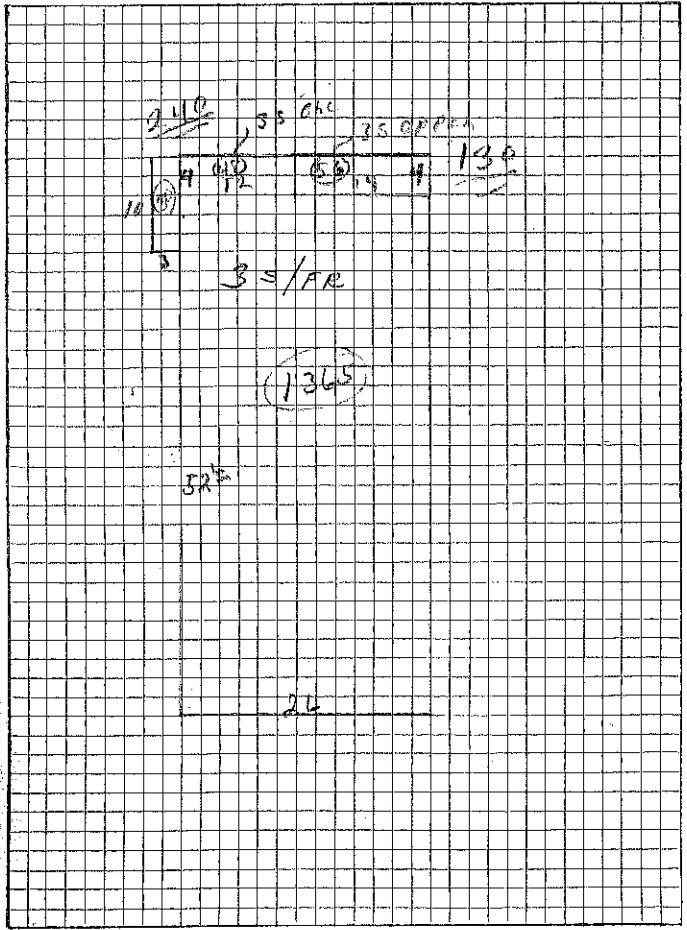 240
3S Enc
3S OPPCH
130
4
48
12
56
14
4
10
3
3 S/FR
1365
52½
26